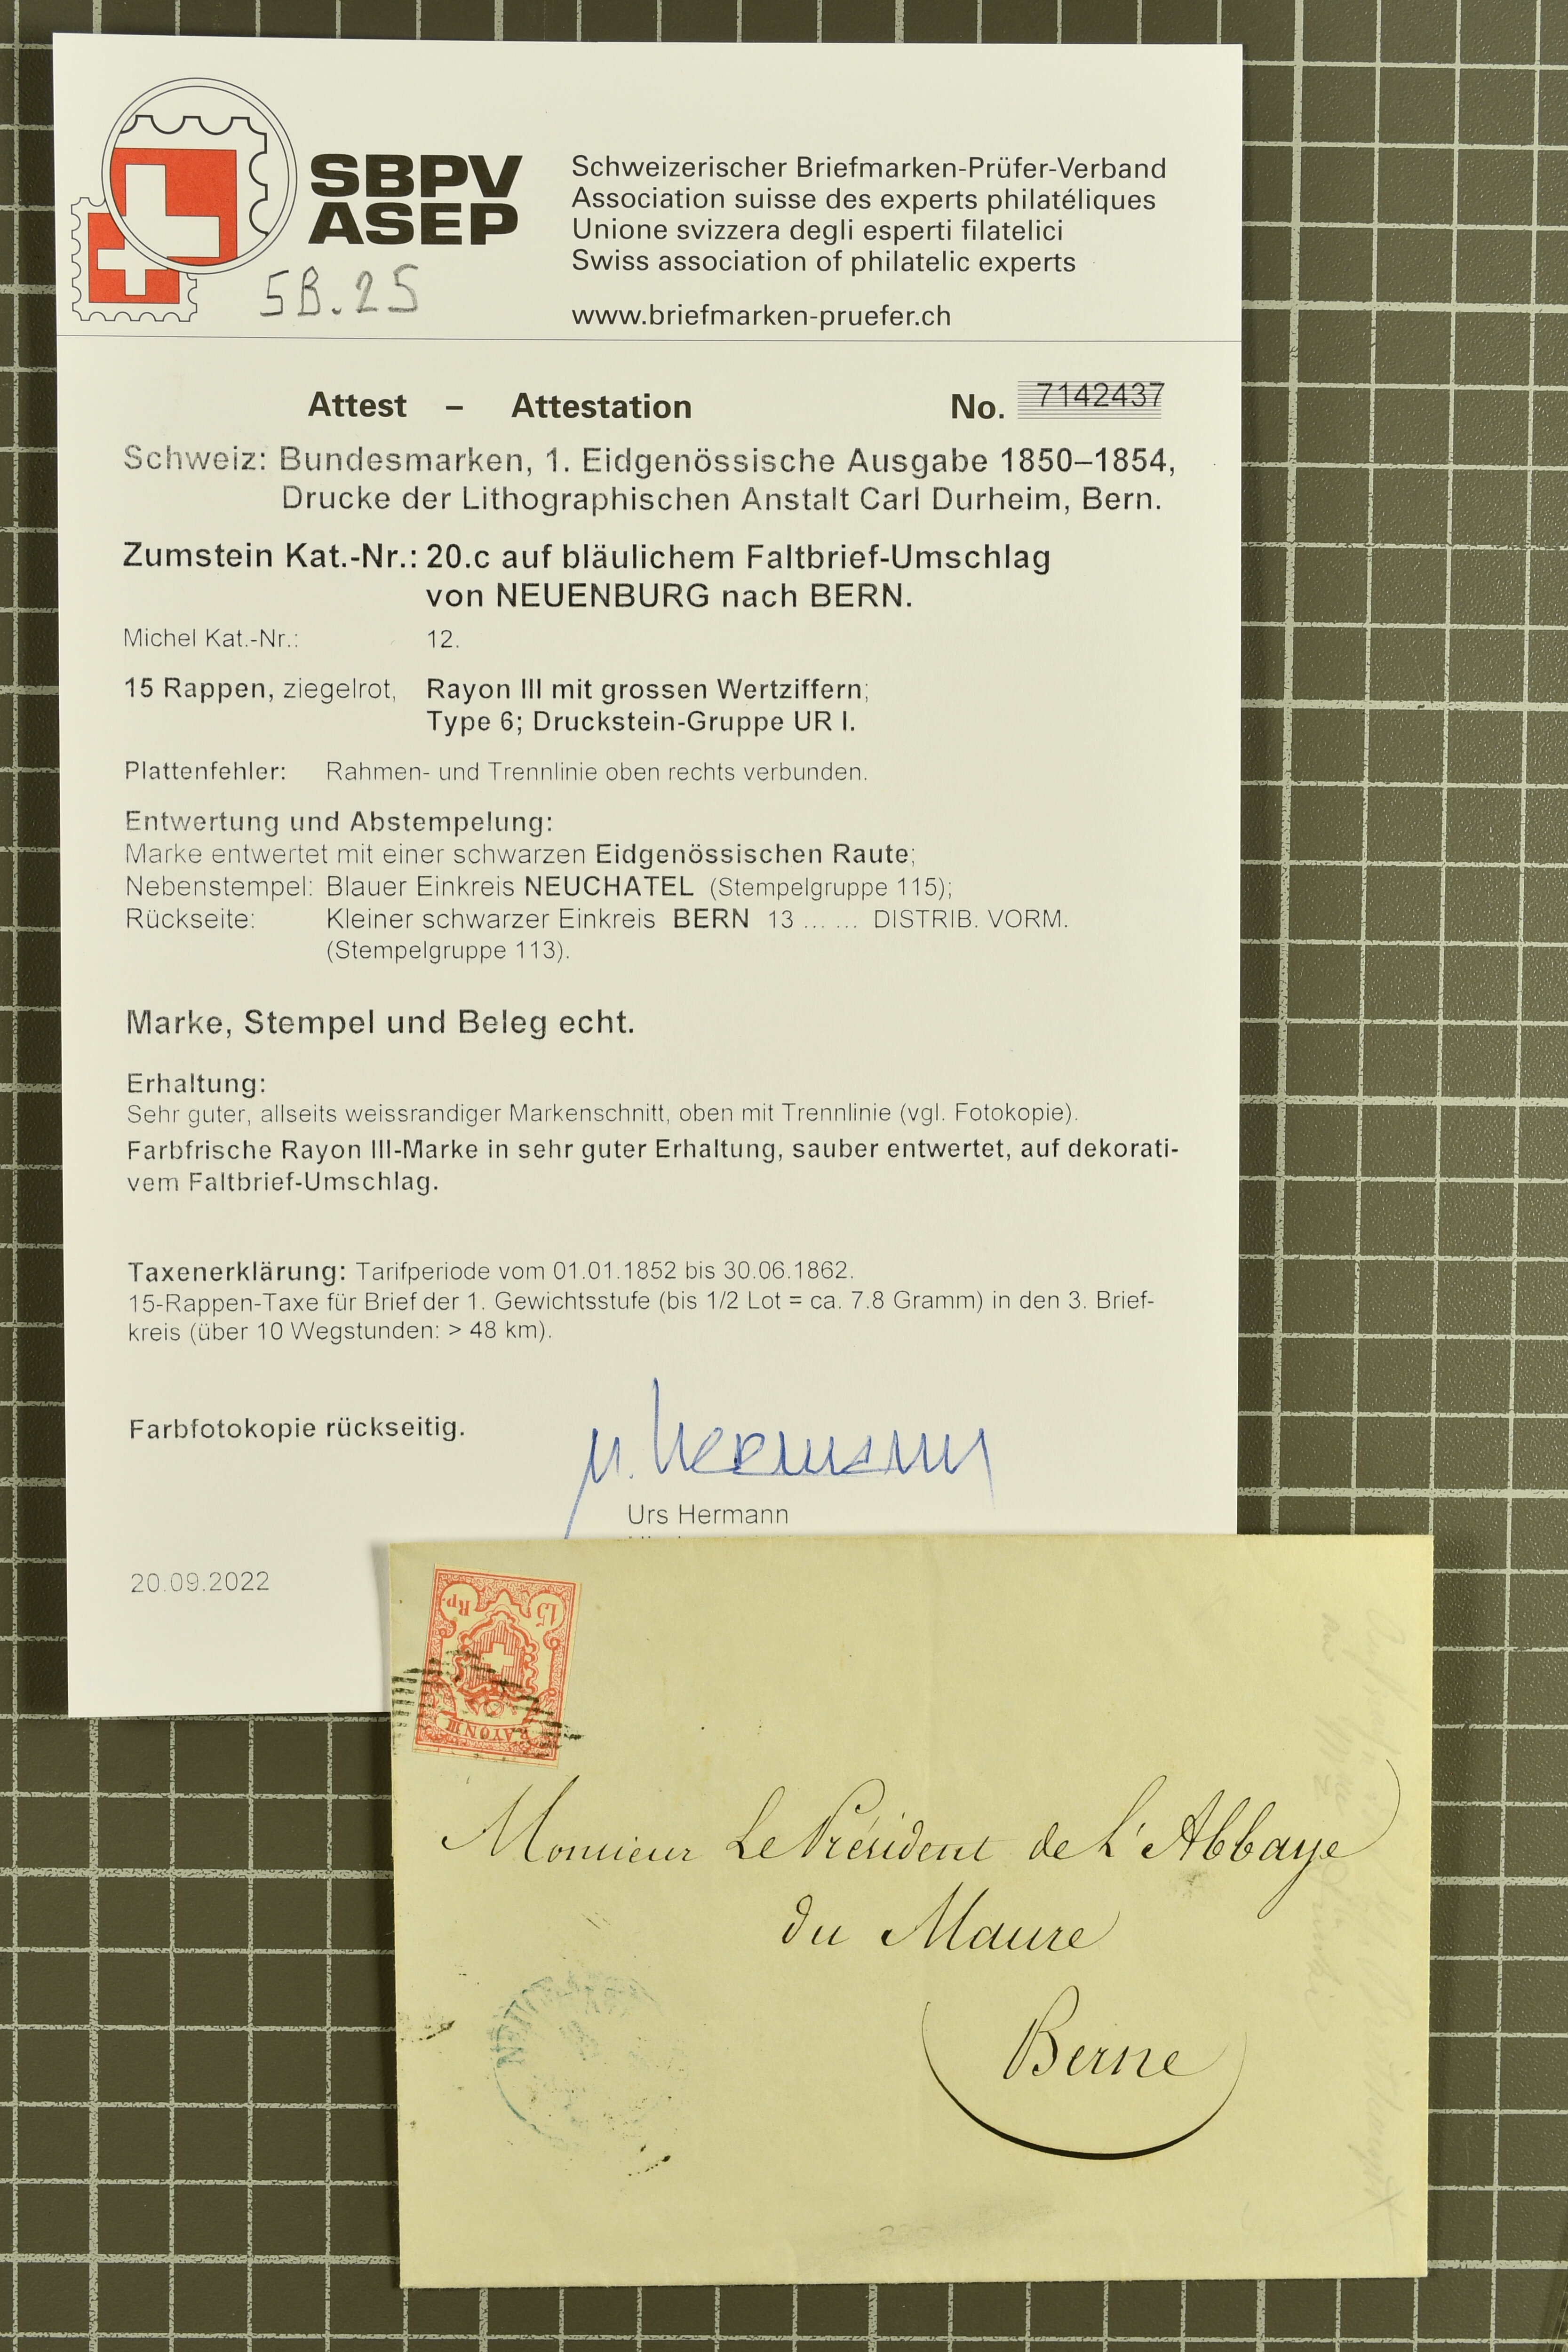 SBPV
ASEP
Schweizerischer Briefmarken-Prüfer-Verband
Association suisse des experts philatéliques
Unione svizzera degli esperti filatelici
Swiss association of philatelic experts
www.briefmarken-pruefer.ch
5B.25
Attest – Attestation No. 7142437
Schweiz: Bundesmarken, 1. Eidgenössische Ausgabe 1850–1854,
Drucke der Lithographischen Anstalt Carl Durheim, Bern.
Zumstein Kat.-Nr.: 20.c auf bläulichem Faltbrief-Umschlag
von NEUENBURG nach BERN.
Michel Kat.-Nr.: 12.
15 Rappen, ziegelrot, Rayon III mit grossen Wertziffern;
Type 6; Druckstein-Gruppe UR I.
Plattenfehler: Rahmen- und Trennlinie oben rechts verbunden.
Entwertung und Abstempelung:
Marke entwertet mit einer schwarzen Eidgenössischen Raute;
Nebenstempel: Blauer Einkreis NEUCHATEL (Stempelgruppe 115);
Rückseite: Kleiner schwarzer Einkreis BERN 13 ... ... DISTRIB. VORM.
(Stempelgruppe 113).
Marke, Stempel und Beleg echt.
Erhaltung:
Sehr guter, allseits weissrandiger Markenschnitt, oben mit Trennlinie (vgl. Fotokopie).
Farbfrische Rayon III-Marke in sehr guter Erhaltung, sauber entwertet, auf dekorati-
vem Faltbrief-Umschlag.
Taxenerklärung: Tarifperiode vom 01.01.1852 bis 30.06.1862.
15-Rappen-Taxe für Brief der 1. Gewichtsstufe (bis 1/2 Lot = ca. 7.8 Gramm) in den 3. Brief-
kreis (über 10 Wegstunden: > 48 km).
Farbfotokopie rückseitig.
U. Hermann
Urs Hermann
20.09.2022
15 Rp.
RAYON III
Monsieur Le Président de L'Abbaye
du Maure
Berne